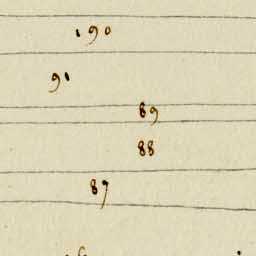 190
91
89
88
87